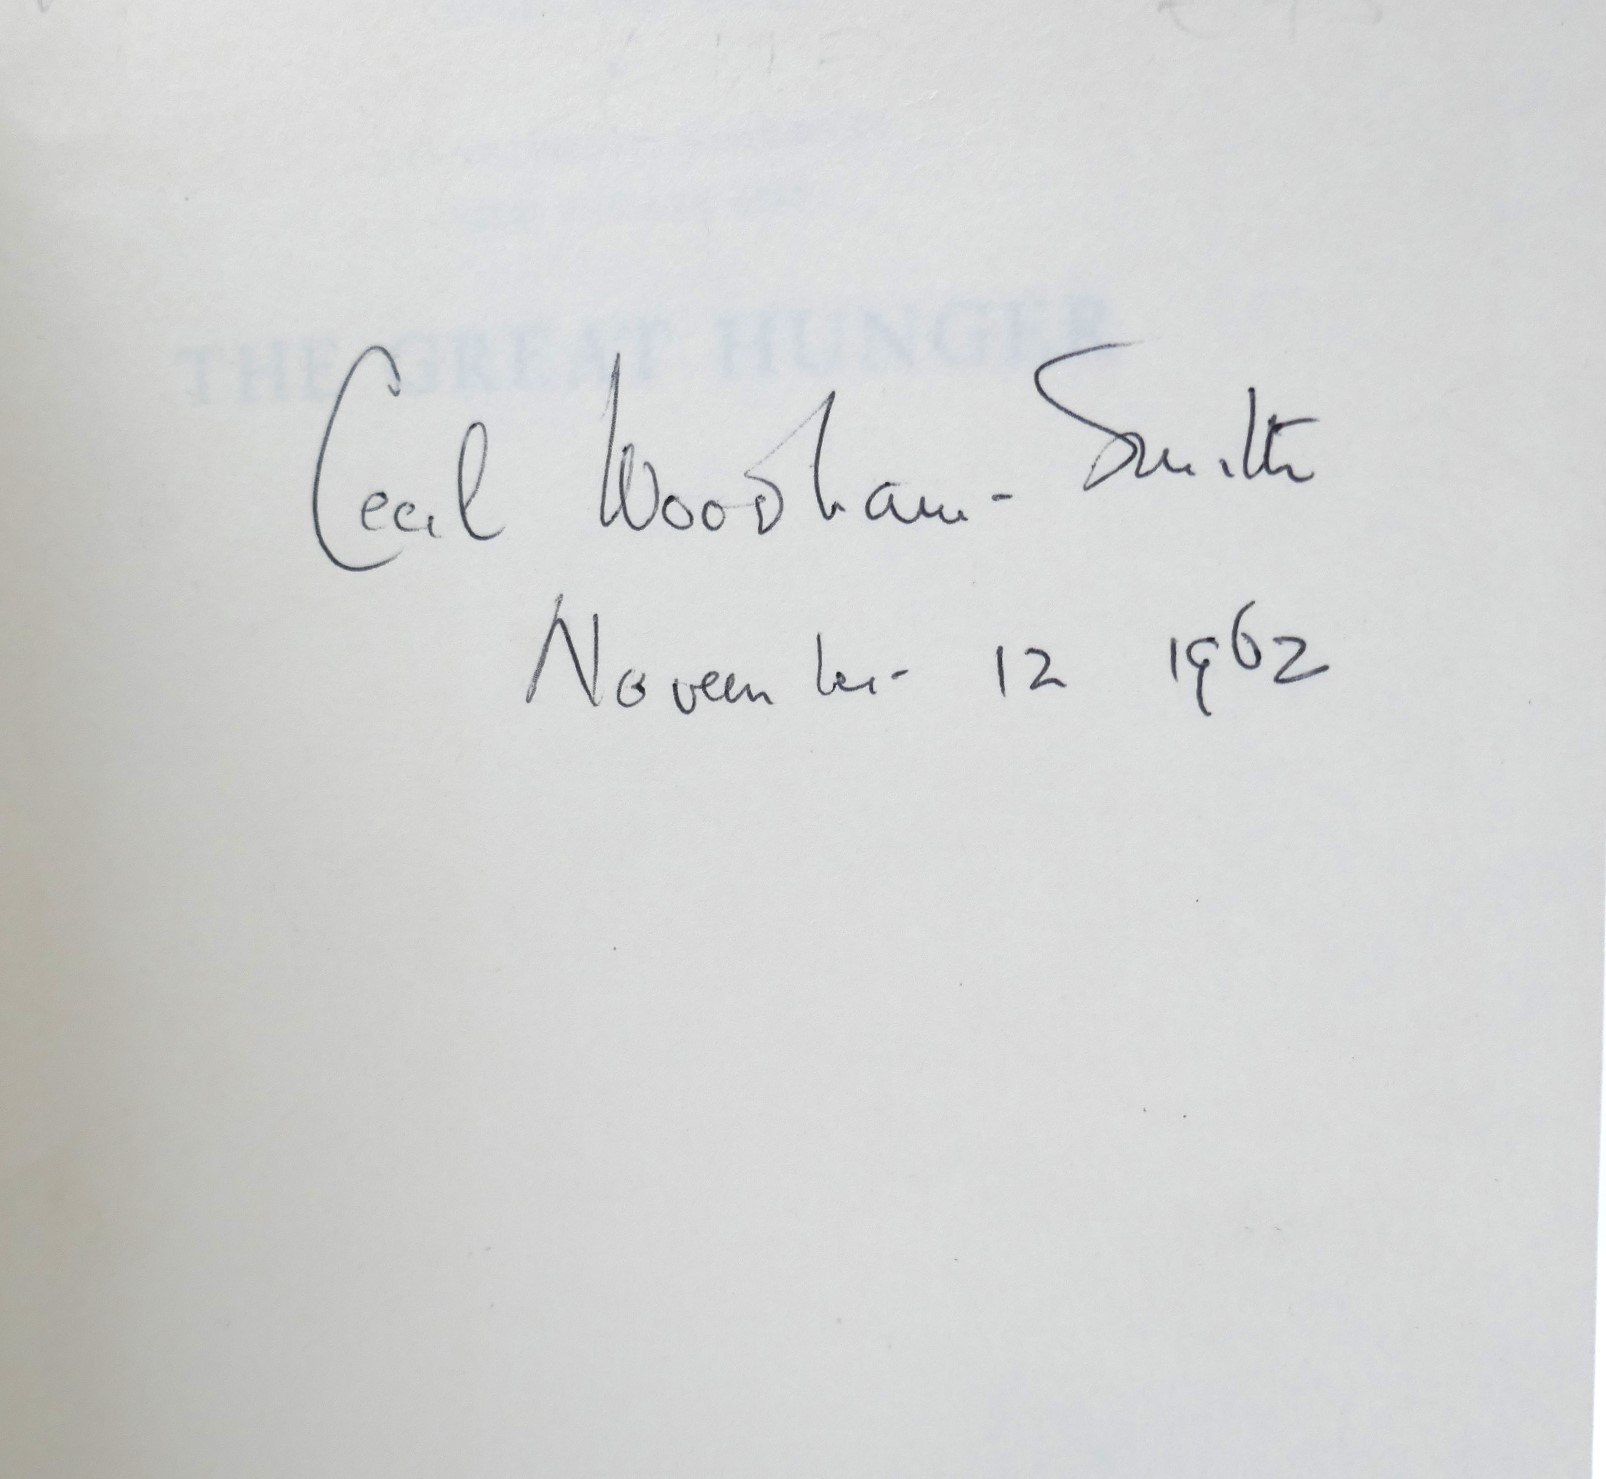 THE GREAT HUNGER
Cecil Woodham-Smith
November 12 1962